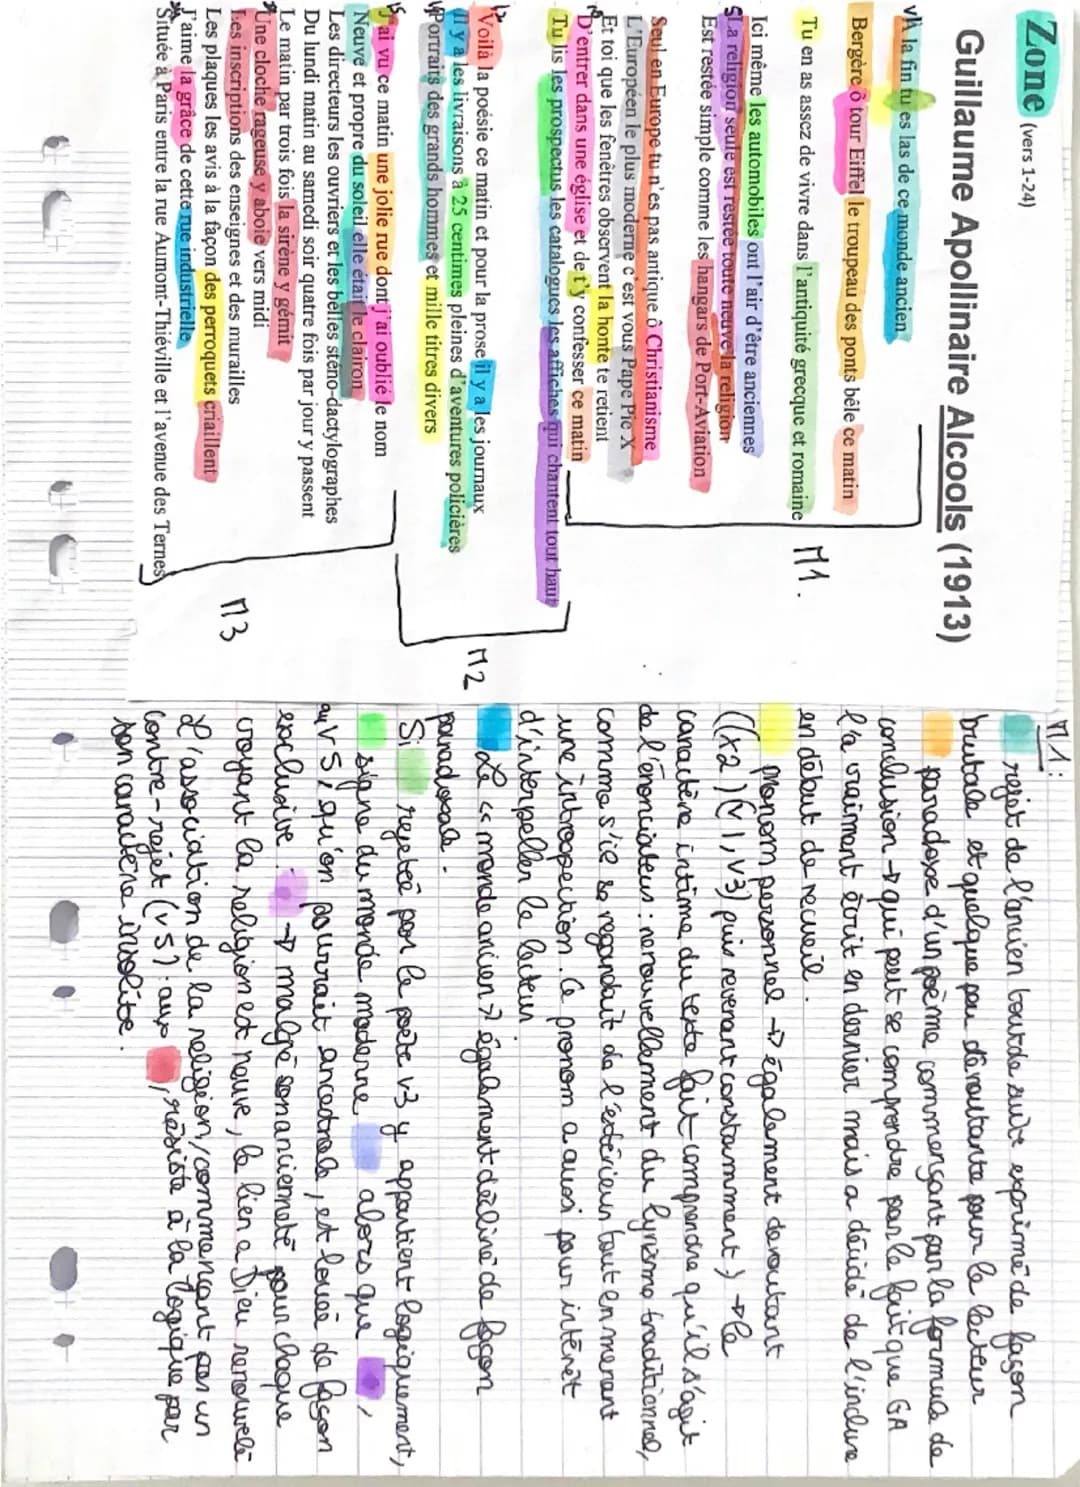 Zone (vers 1-24)
Guillaume Apollinaire Alcools (1913)
V1 A la fin tu es las de ce monde ancien
Bergère ô tour Eiffel le troupeau des ponts bêle ce matin
Tu en as assez de vivre dans l'antiquité grecque et romaine
Ici même les automobiles ont l'air d'être anciennes
5 La religion seule est restée toute neuve la religion
Est restée simple comme les hangars de Port-Aviation
Seul en Europe tu n'es pas antique ô Christianisme
L'Européen le plus moderne c'est vous Pape Pie X
Et toi que les fenêtres observent la honte te retient
10 D'entrer dans une église et de t'y confesser ce matin
Tu lis les prospectus les catalogues les affiches qui chantent tout haut
12 Voilà la poésie ce matin et pour la prose il y a les journaux
Il y a les livraisons à 25 centimes pleines d'aventures policières
Portraits des grands hommes et mille titres divers
15 J'ai vu ce matin une jolie rue dont j'ai oublié le nom
Neuve et propre du soleil elle était le clairon
Les directeurs les ouvriers et les belles sténo-dactylographes
Du lundi matin au samedi soir quatre fois par jour y passent
Le matin par trois fois la sirène y gémit
Une cloche rageuse y aboie vers midi
Les inscriptions des enseignes et des murailles
Les plaques les avis à la façon des perroquets criaillent
J'aime la grâce de cette rue industrielle
Située à Paris entre la rue Aumont-Thiéville et l'avenue des Ternes
M1.
M2
M3
M1:
rejet de l'ancien tout de suite exprimé de façon
brutale et quelque peu déroutante pour le lecteur
paradoxe d'un poème commençant par la formule de
conclusion → qui peut se comprendre par le fait que GA
l'a vraiment écrit en dernier mais a décidé de l'inclure
en début de recueil.
pronom personnel → également déroutant
((x2) (v1, v3) puis revenant constamment) → le
caractère intime du texte fait comprendre qu'il s'agit
de l'énonciateur : renouvellement du lyrisme traditionnel,
comme s'il se regardait de l'extérieur tout en menant
une introspection. Ce pronom a aussi pour intérêt
d'interpeller le lecteur
Le << monde ancien >> également décliné de façon
paradoxale.
Si rejetée par le poète v3 y appartient logiquement,
signe du monde moderne alors que ,
au V5, qu'on pourrait ancestrale, et louée de façon
exclusive. → malgré son ancienneté pour chaque
croyant la religion est neuve, le lien a Dieu renouvelé
L'association de la religion/commençant par un
contre-rejet (v5) : aux , résiste à la logique par
son caractère insolite.